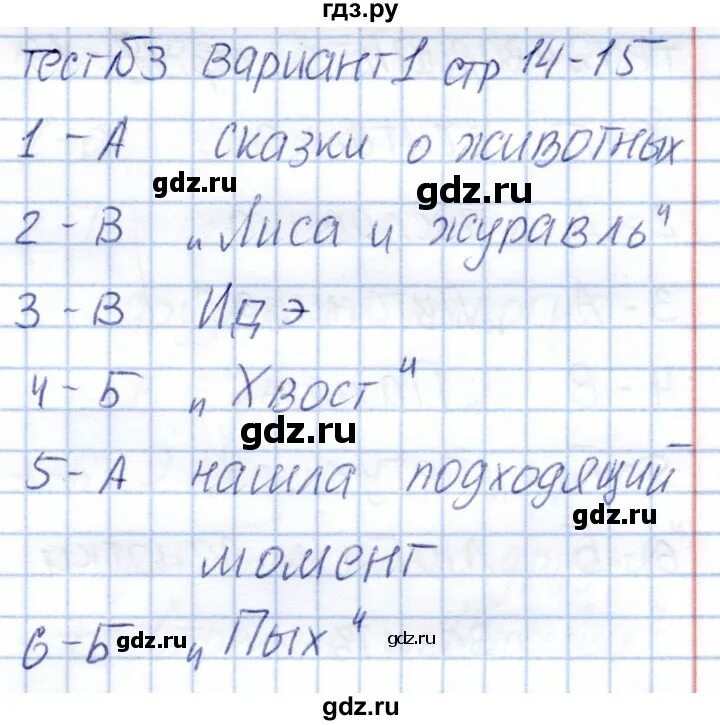 гдз.ру
Тест№3 Вариант 1 стр 14-15
1 - А сказки о животных
gdz.ru gdz.ru
2 - В „Лиса и журавль"
3 - В Идэ
4 - Б „Хвост"
gdz.ru
5 - А нашла подходящий
gdz.ru
момент
6 - Б „Пых"
gdz.ru gdz.ru
gdz.ru